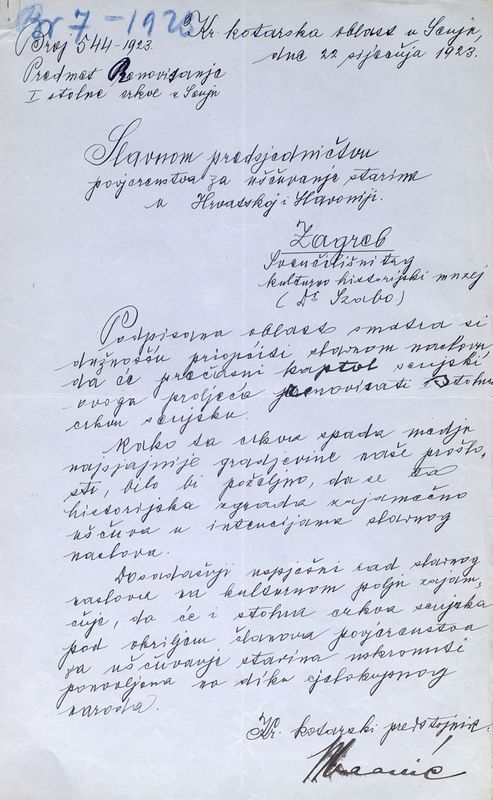 Br 7 - 192
Broj 544-1923.
Kr. kotarska oblast u Senju,
dne 22 siječnja 1923.
Predmet Renoviranje
I stolne crkve u Senju
Slavnom predsjedničtvu
povjerenstva za uščuvanje starina
u Hrvatskoj i Slavoniji.
Zagreb
Sveučilišni trg
kulturno historijski muzej
( Dr Szabo )
Podpisana oblast smatra si
dužnošću priopćiti slavnom naslovu
da će prečasni kaptol senjski
ovoga proljeća renovirati stolnu
crkvu senjsku.
Kako ta crkva spada medju
najsjajnije gradjevine naše prošlo-
sti, bilo bi poželjno, da se ta
historijska zgrada zajamčeno
uščuva u intencijama slavnog
naslova.
Dosadašnji uspješni rad slavnog
naslova na kulturnom polju zajam-
čuje, da će i stolna crkva senjska
pod okriljem članova povjerenstva
za uščuvanje starina uskrsnuti
ponovljena na diku cjelokupnog
naroda.
Kr. kotarski predstojnik: